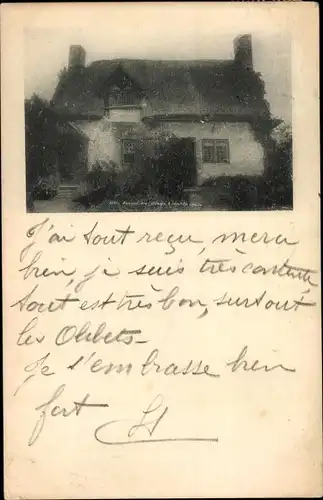 J'ai tout reçu, merci
bien, je suis très contente
tout est très bon, surtout
les Oblets-
Je t'embrasse bien
fort